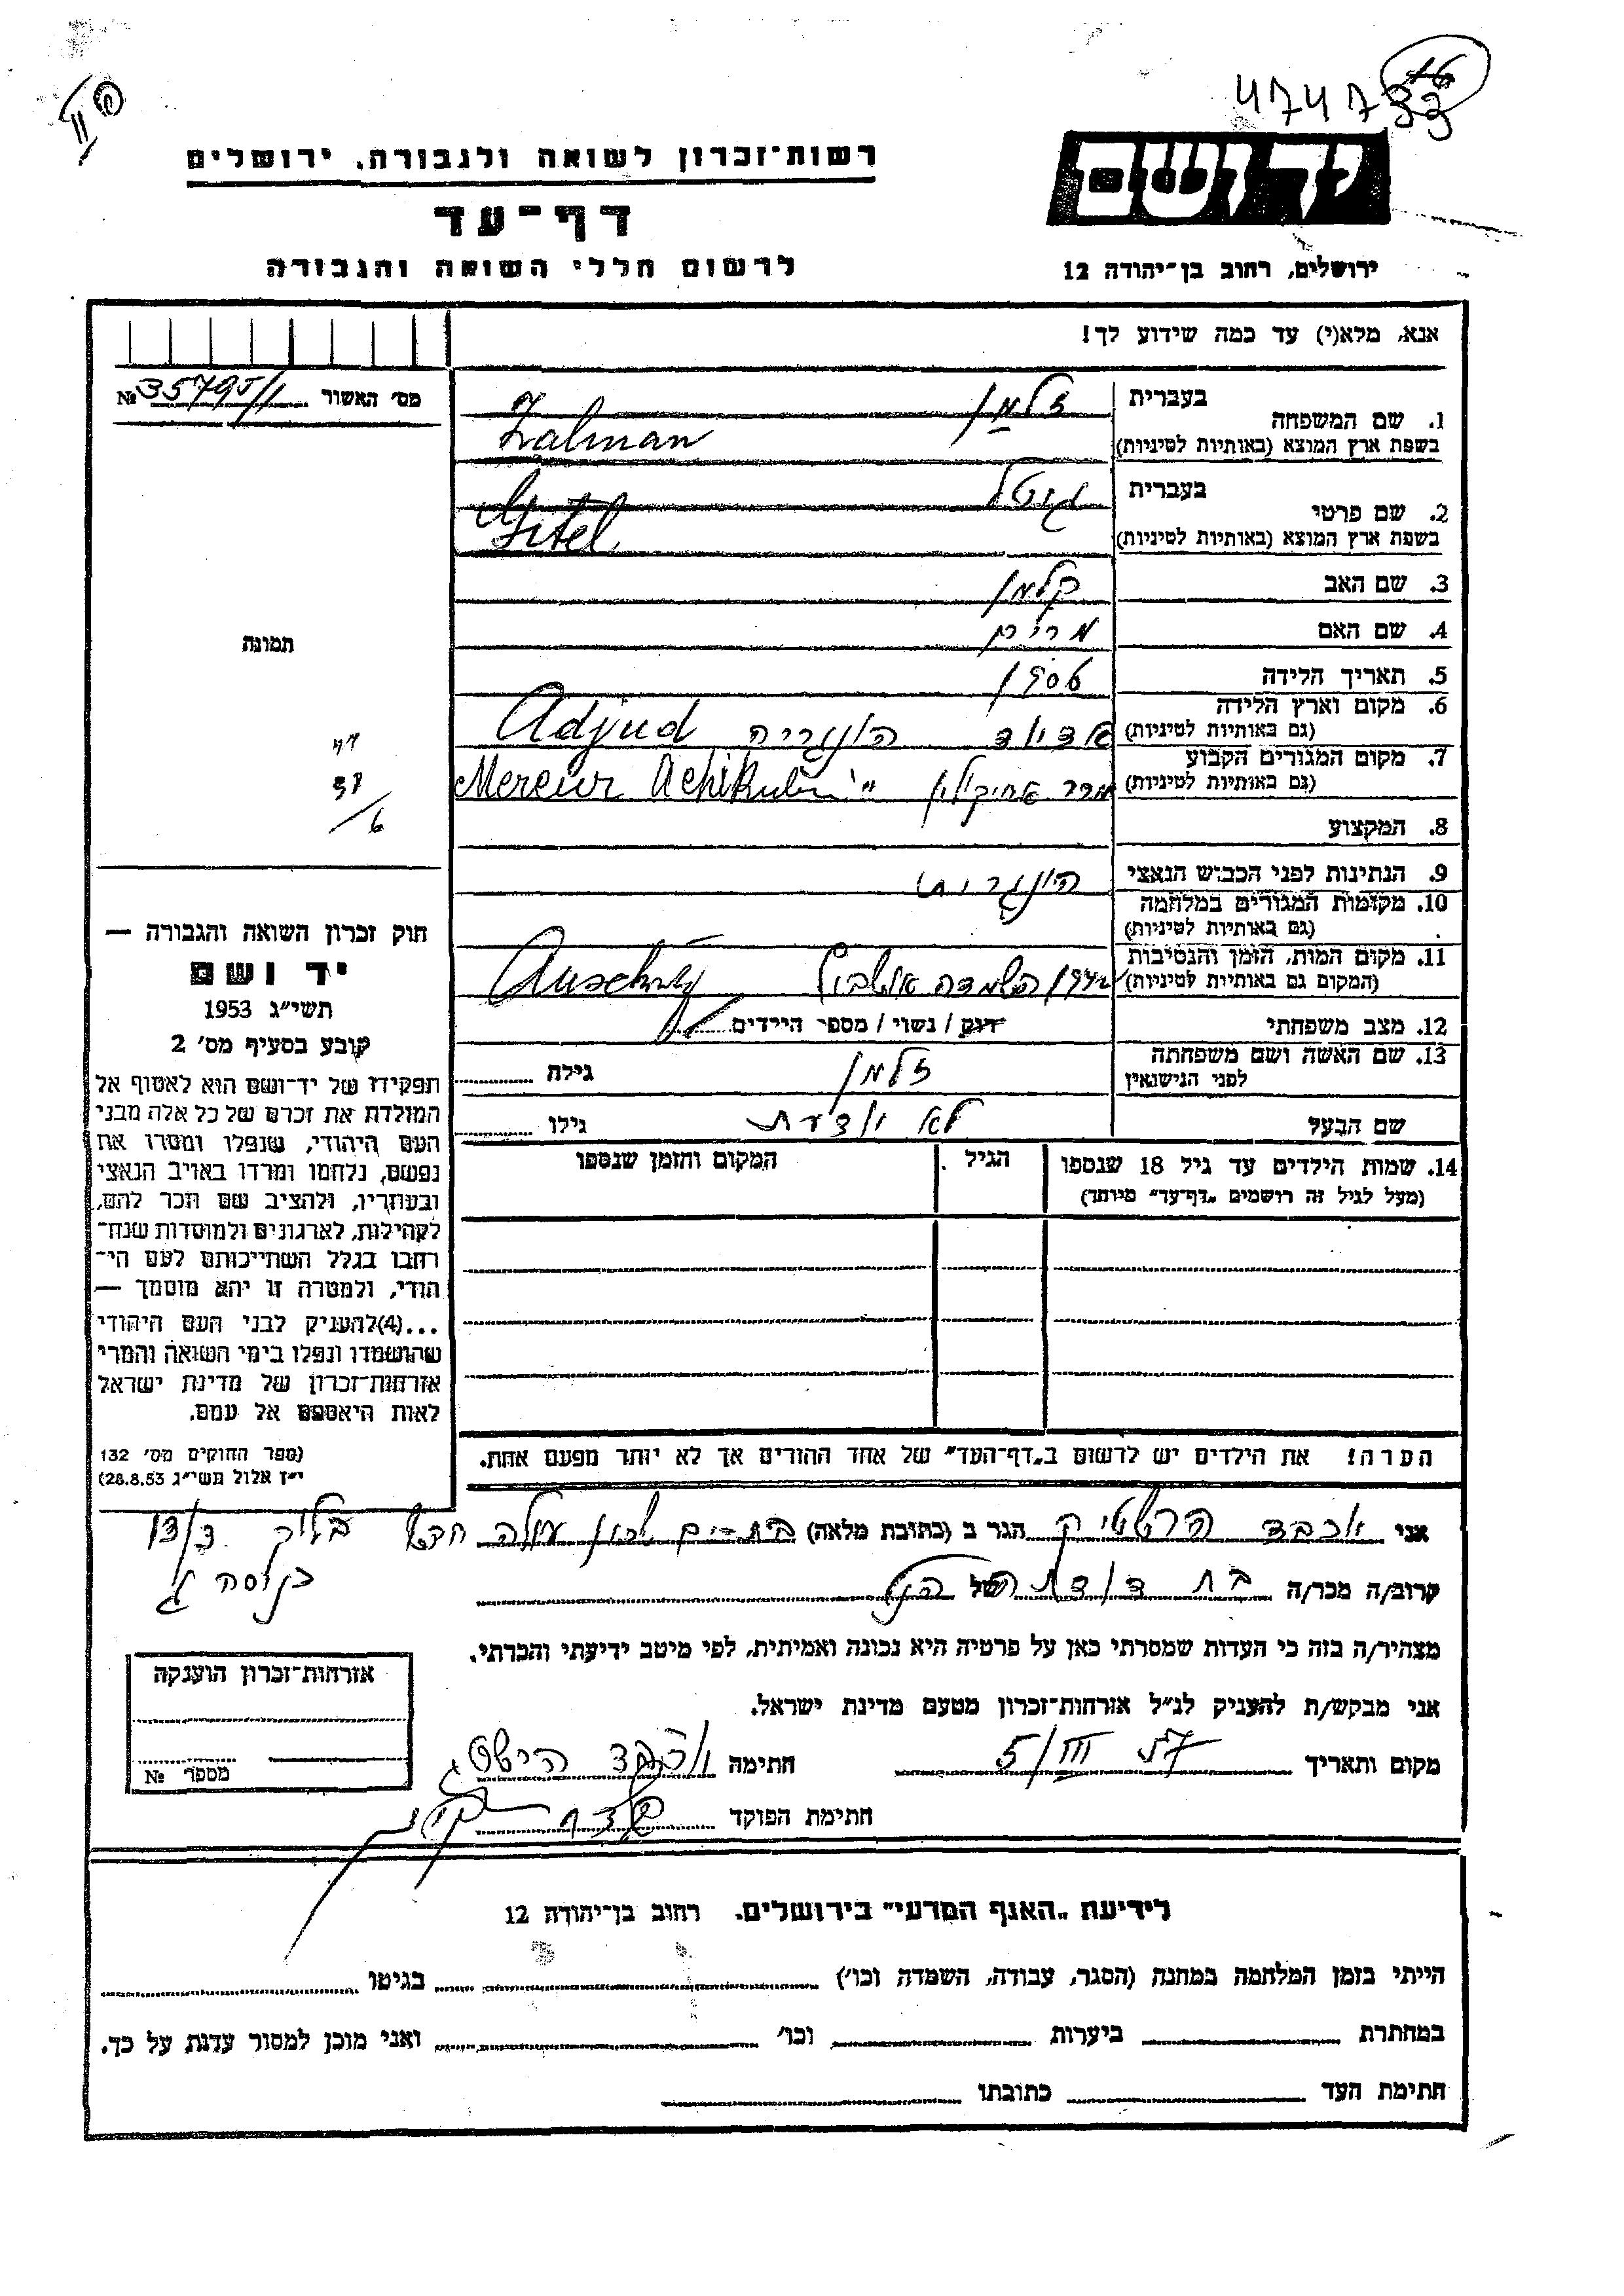 474733
16
רשות־זכרון לשואה ולגבורה, ירושלים
יד ושם
דף־עד
לרשום חללי השואה והגבורה
ירושלים, רחוב בן־יהודה 12
אנא, מלא(י) עד כמה שידוע לך!
מס׳ האשור № 35795/1
1. שם המשפחה
בעברית זלמן
בשפת ארץ המוצא (באותיות לטיניות) Zalman
2. שם פרטי
בעברית גיטל
בשפת ארץ המוצא (באותיות לטיניות) Gitel
3. שם האב קלמן
4. שם האם מרים
5. תאריך הלידה 1904
6. מקום וארץ הלידה
(גם באותיות לטיניות) הונגריה Adjud
7. מקום המגורים הקבוע
(גם באותיות לטיניות) Mercur
8. המקצוע
9. הנתינות לפני הכבוש הנאצי הונגרית
10. מקומות המגורים במלחמה
(גם באותיות לטיניות)
11. מקום המות, הזמן והנסיבות
(המקום גם באותיות לטיניות) השמדה אושביץ Auschwitz
12. מצב משפחתי רווק / נשוי / מספר הילדים
13. שם האשה ושם משפחתה
לפני הנישואין זלמן גילה
שם הבעל לא יודעת גילו
14. שמות הילדים עד גיל 18 שנספו
(מעל לגיל זה רושמים „דף־עד״ מיוחד)
הגיל
המקום והזמן שנספו
הערה! את הילדים יש לרשום ב„דף־העד״ של אחד ההורים אך לא יותר מפעם אחת.
תמונה
חוק זכרון השואה והגבורה —
יד ושם
תשי״ג 1953
קובע בסעיף מס׳ 2
תפקידו של יד־ושם הוא לאסוף אל
המולדת את זכרם של כל אלה מבני
העם היהודי, שנפלו ומסרו את
נפשם, נלחמו ומרדו באויב הנאצי
ובעוזריו, ולהציב שם וזכר להם,
לקהילות, לארגונים ולמוסדות שנח־
רבו בגלל השתייכותם לעם הי־
הודי, ולמטרה זו יהא מוסמך —
...(4)להעניק לבני העם היהודי
שהושמדו ונפלו בימי השואה והמרי
אזרחות־זכרון של מדינת ישראל
לאות היאספם אל עמם.
(ספר החוקים מס׳ 132
י״ז אלול תשי״ג 28.8.53)
אני יוכבד הרשטיק הגר ב (כתובת מלאה) בת־ים שכון עולה חדש בלוק 13/3
כניסה ג׳
קרוב/ה מכר/ה בת דודת של הנ״ל
מצהיר/ה בזה כי העדות שמסרתי כאן על פרטיה היא נכונה ואמיתית, לפי מיטב ידיעתי והכרתי.
אני מבקש/ת להעניק לנ״ל אזרחות־זכרון מטעם מדינת ישראל.
מקום ותאריך 5/III 57 חתימה יוכבד הרשטיג
חתימת הפוקד
אזרחות־זכרון הוענקה
מספר №
לידיעת „האגף המדעי״ בירושלים. רחוב בן־יהודה 12
הייתי בזמן המלחמה במחנה (הסגר, עבודה, השמדה וכו׳) בגיטו
במחתרת ביערות וכו׳ ואני מוכן למסור עדות על כך.
חתימת העד כתובתו